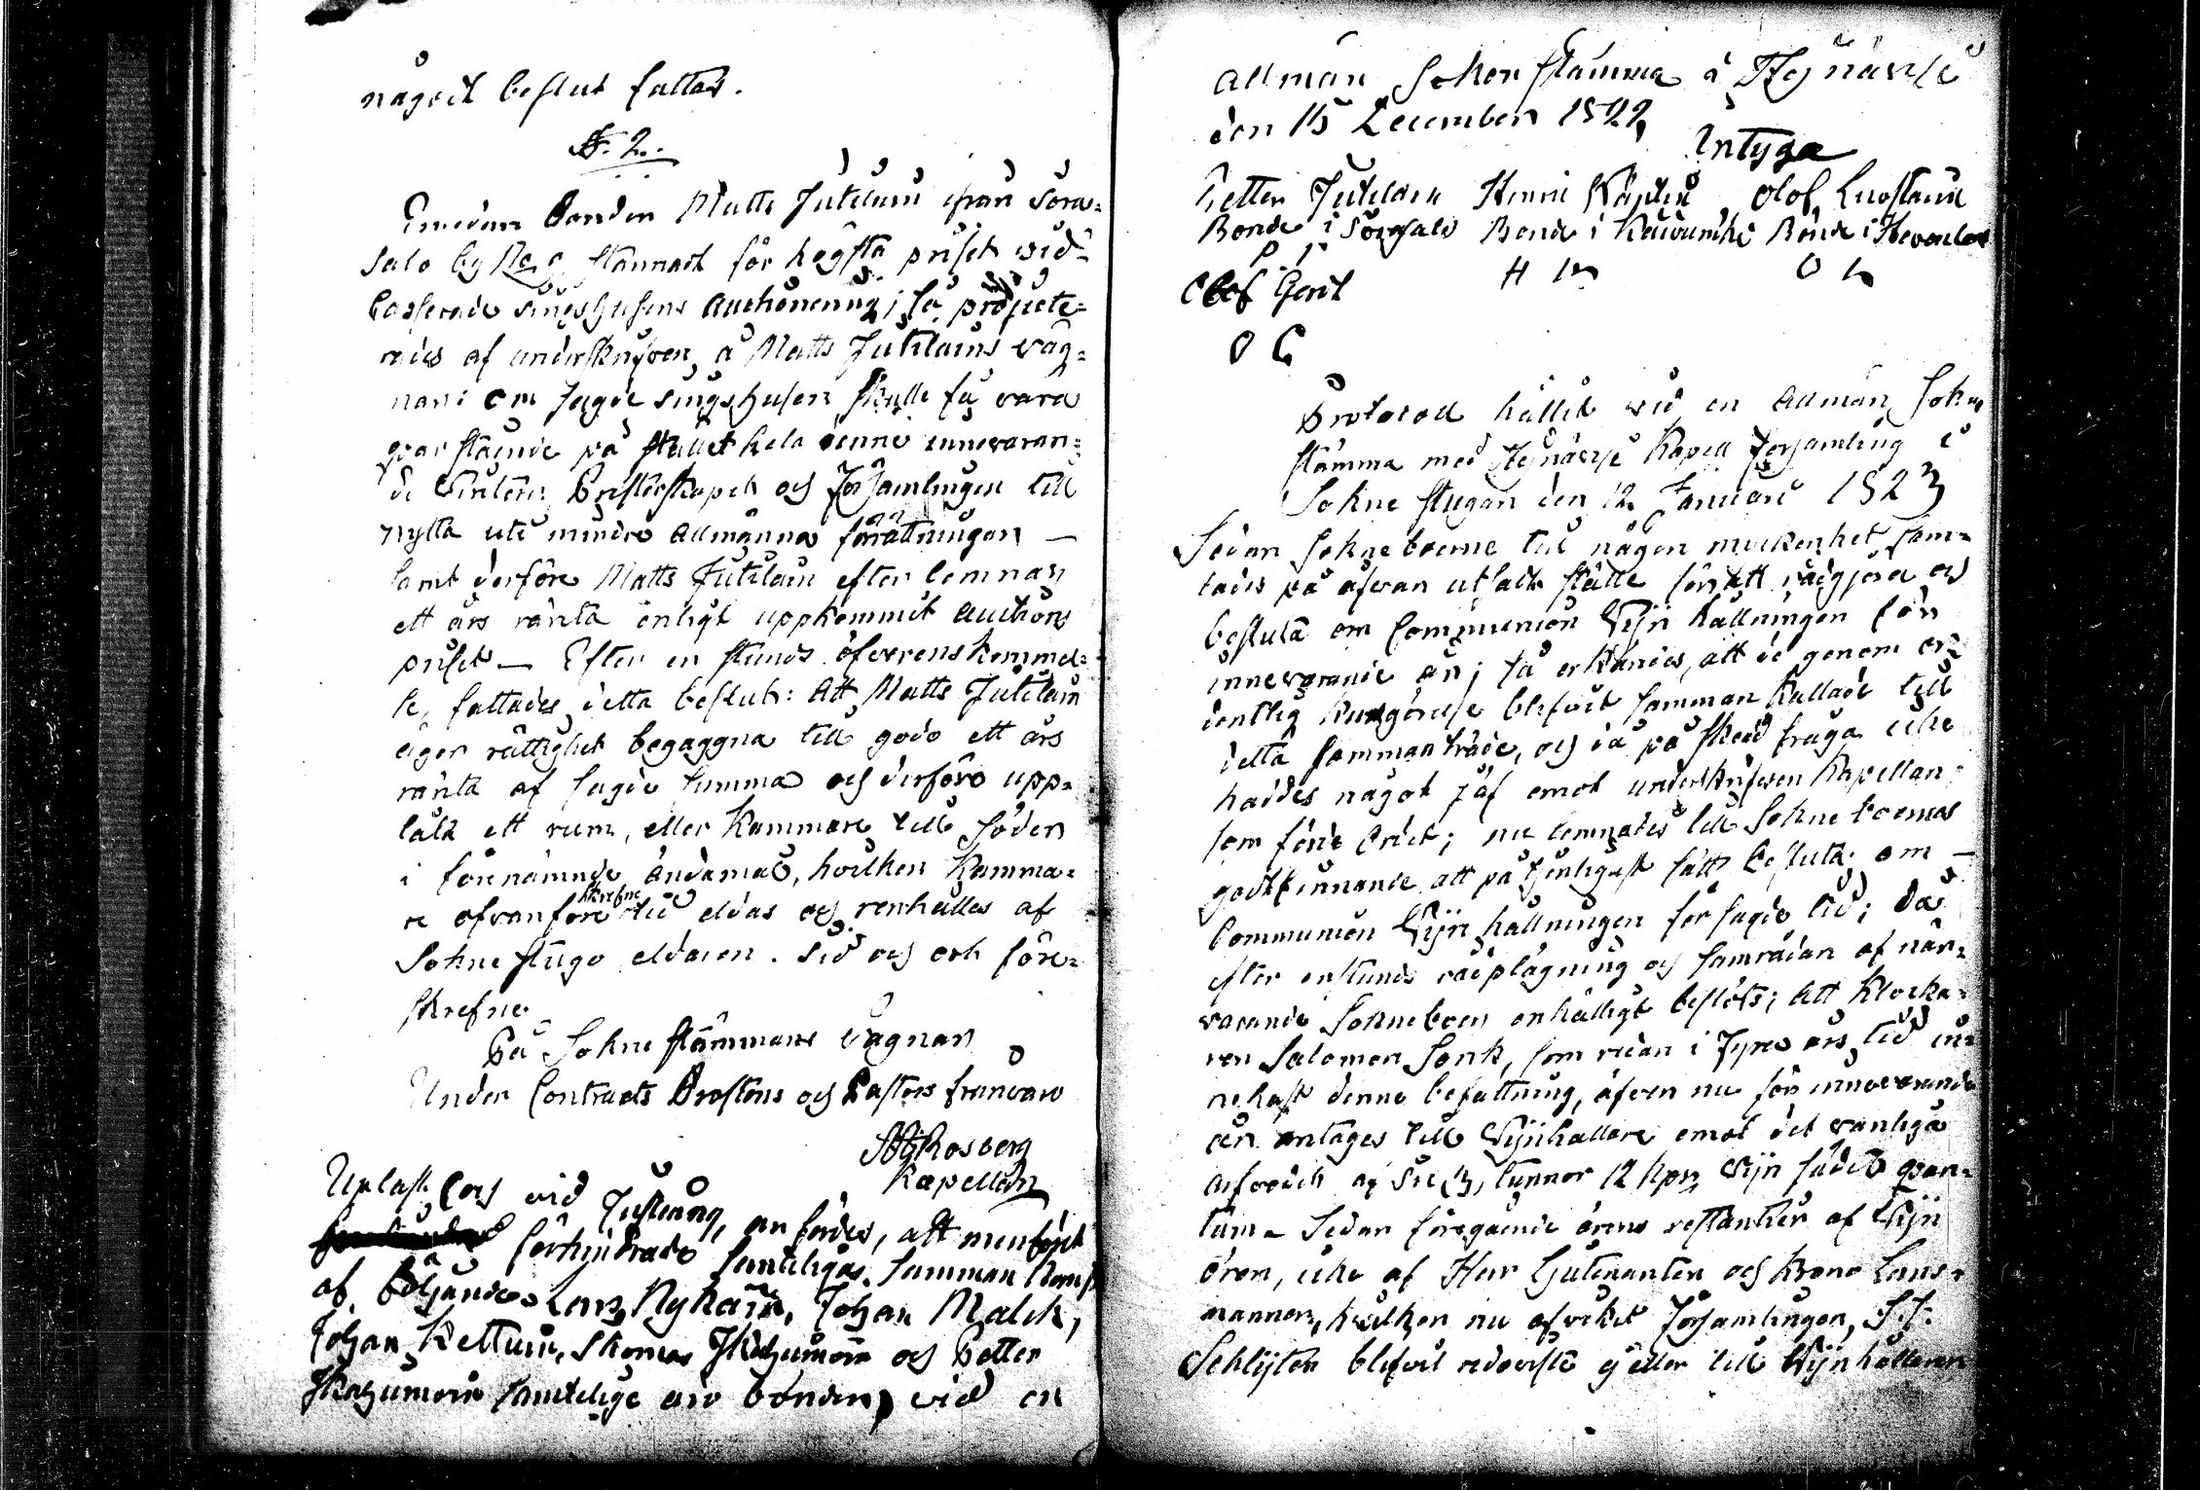 något beslut fattas.
§. 2.
Emedan Bonden Matts Jutilain ifrån Sora=
salo by No 9 stannadt för högsta priset vid
Casserade singshusens Auctionering; så projecte=
rades af underskrifven å Matts Jutilains väg=
nar: om sagde singshusen skulle få vara
qvar stående på stället hela denne innevaran=
de Vintern Presterskapet och Församlingen till
nytta uti mindre allmänna förättningar —
samt derföre Matts Jutilain efter lemnas
ett års ränta enligt uppkommit auctions
priset — Efter en stunds öfverenskommel=
se, fattades detta beslut: Att Matts Jutilain
äger rättighet begaggna till godo ett års
ränta af sagde summa och derföre upp=
låta ett rum, eller Kammare till Söder
i förenämnde ändamål, hvilken Kamma=
re ofvanföre skrefne tid eldas och renhålles af
Sokne stugo eldaren. Åid och ort före=
skrefne.
På Sokne stämmans vägnar
Under Contracts Prostens och Pastors frånvaro
Rosberg
Kapellan
Uplast och vid Justering, anfördes, att menföret
förhindrade samteligas samman komst
af följande Lars Nykäin, Johan Malck,
Johan Kettuin, Thomas Ihazumoin och Petter
Ihazumoin samtelige äro bönder, vid en
allmän Soken stämma å Hejnävesi
den 15 December 1822,
Intyga
Petter Jutilain Henric Väjsäin Olof Luostain
Bonde i Sorasalo Bonde i Bonde i
P I H W O L
Olof Gerit
O G
Protocoll hållit vid en allmän Sokne
stämma med Hejnävesi Kapell församling i
Sokne stugan den 12 Januari 1823
Sedan Sokneboerne till någon myckenhet sam=
lades på ofvan utsatte ställe för att rådgjöra och
besluta om Communion Vijn hållningen för
innevarande år; så erkändes, att de genom or=
dentlig kungörelse blifvit samman kallade till
detta sammanträde, och då på skedd fråga icke
haddes något jäf emot underskrifven Kapellan
som förde Ordet; nu lemnades till Sokneboernas
godtfinnande att på tjenligast sätt besluta om —
Communion Vijn hållningen för sagde tid; Då
efter en stunds rådplägning och samrådan af när=
varande Sokneboer enhälligt beslöts; Att Klocka=
ren Salomon Sonk, som redan i fyra års tid in=
nehaft denna befattning, äfven nu för innevarande
år antages till Vijnhållare emot det vanliga
arfvodet af Sex (3) tunnor 12 Kpr Vijn sädes qvan=
tum. Sedan föregående årens restantier af Vijn
ören, icke af Herr Lieutenanten och Krono Läns=
mannen, hvilken nu afvikit Församlingen, J. J.
Schlijter blifvit redoviste ej eller till Vijnhållaren